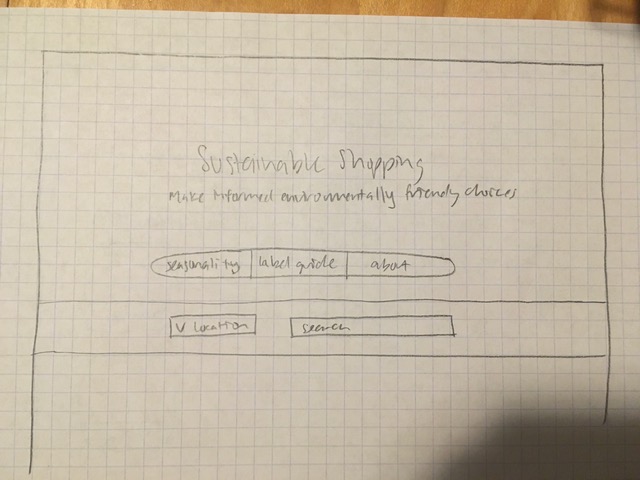 Sustainable Shopping
Make informed environmentally friendly choices
seasonality label guide about
V location search